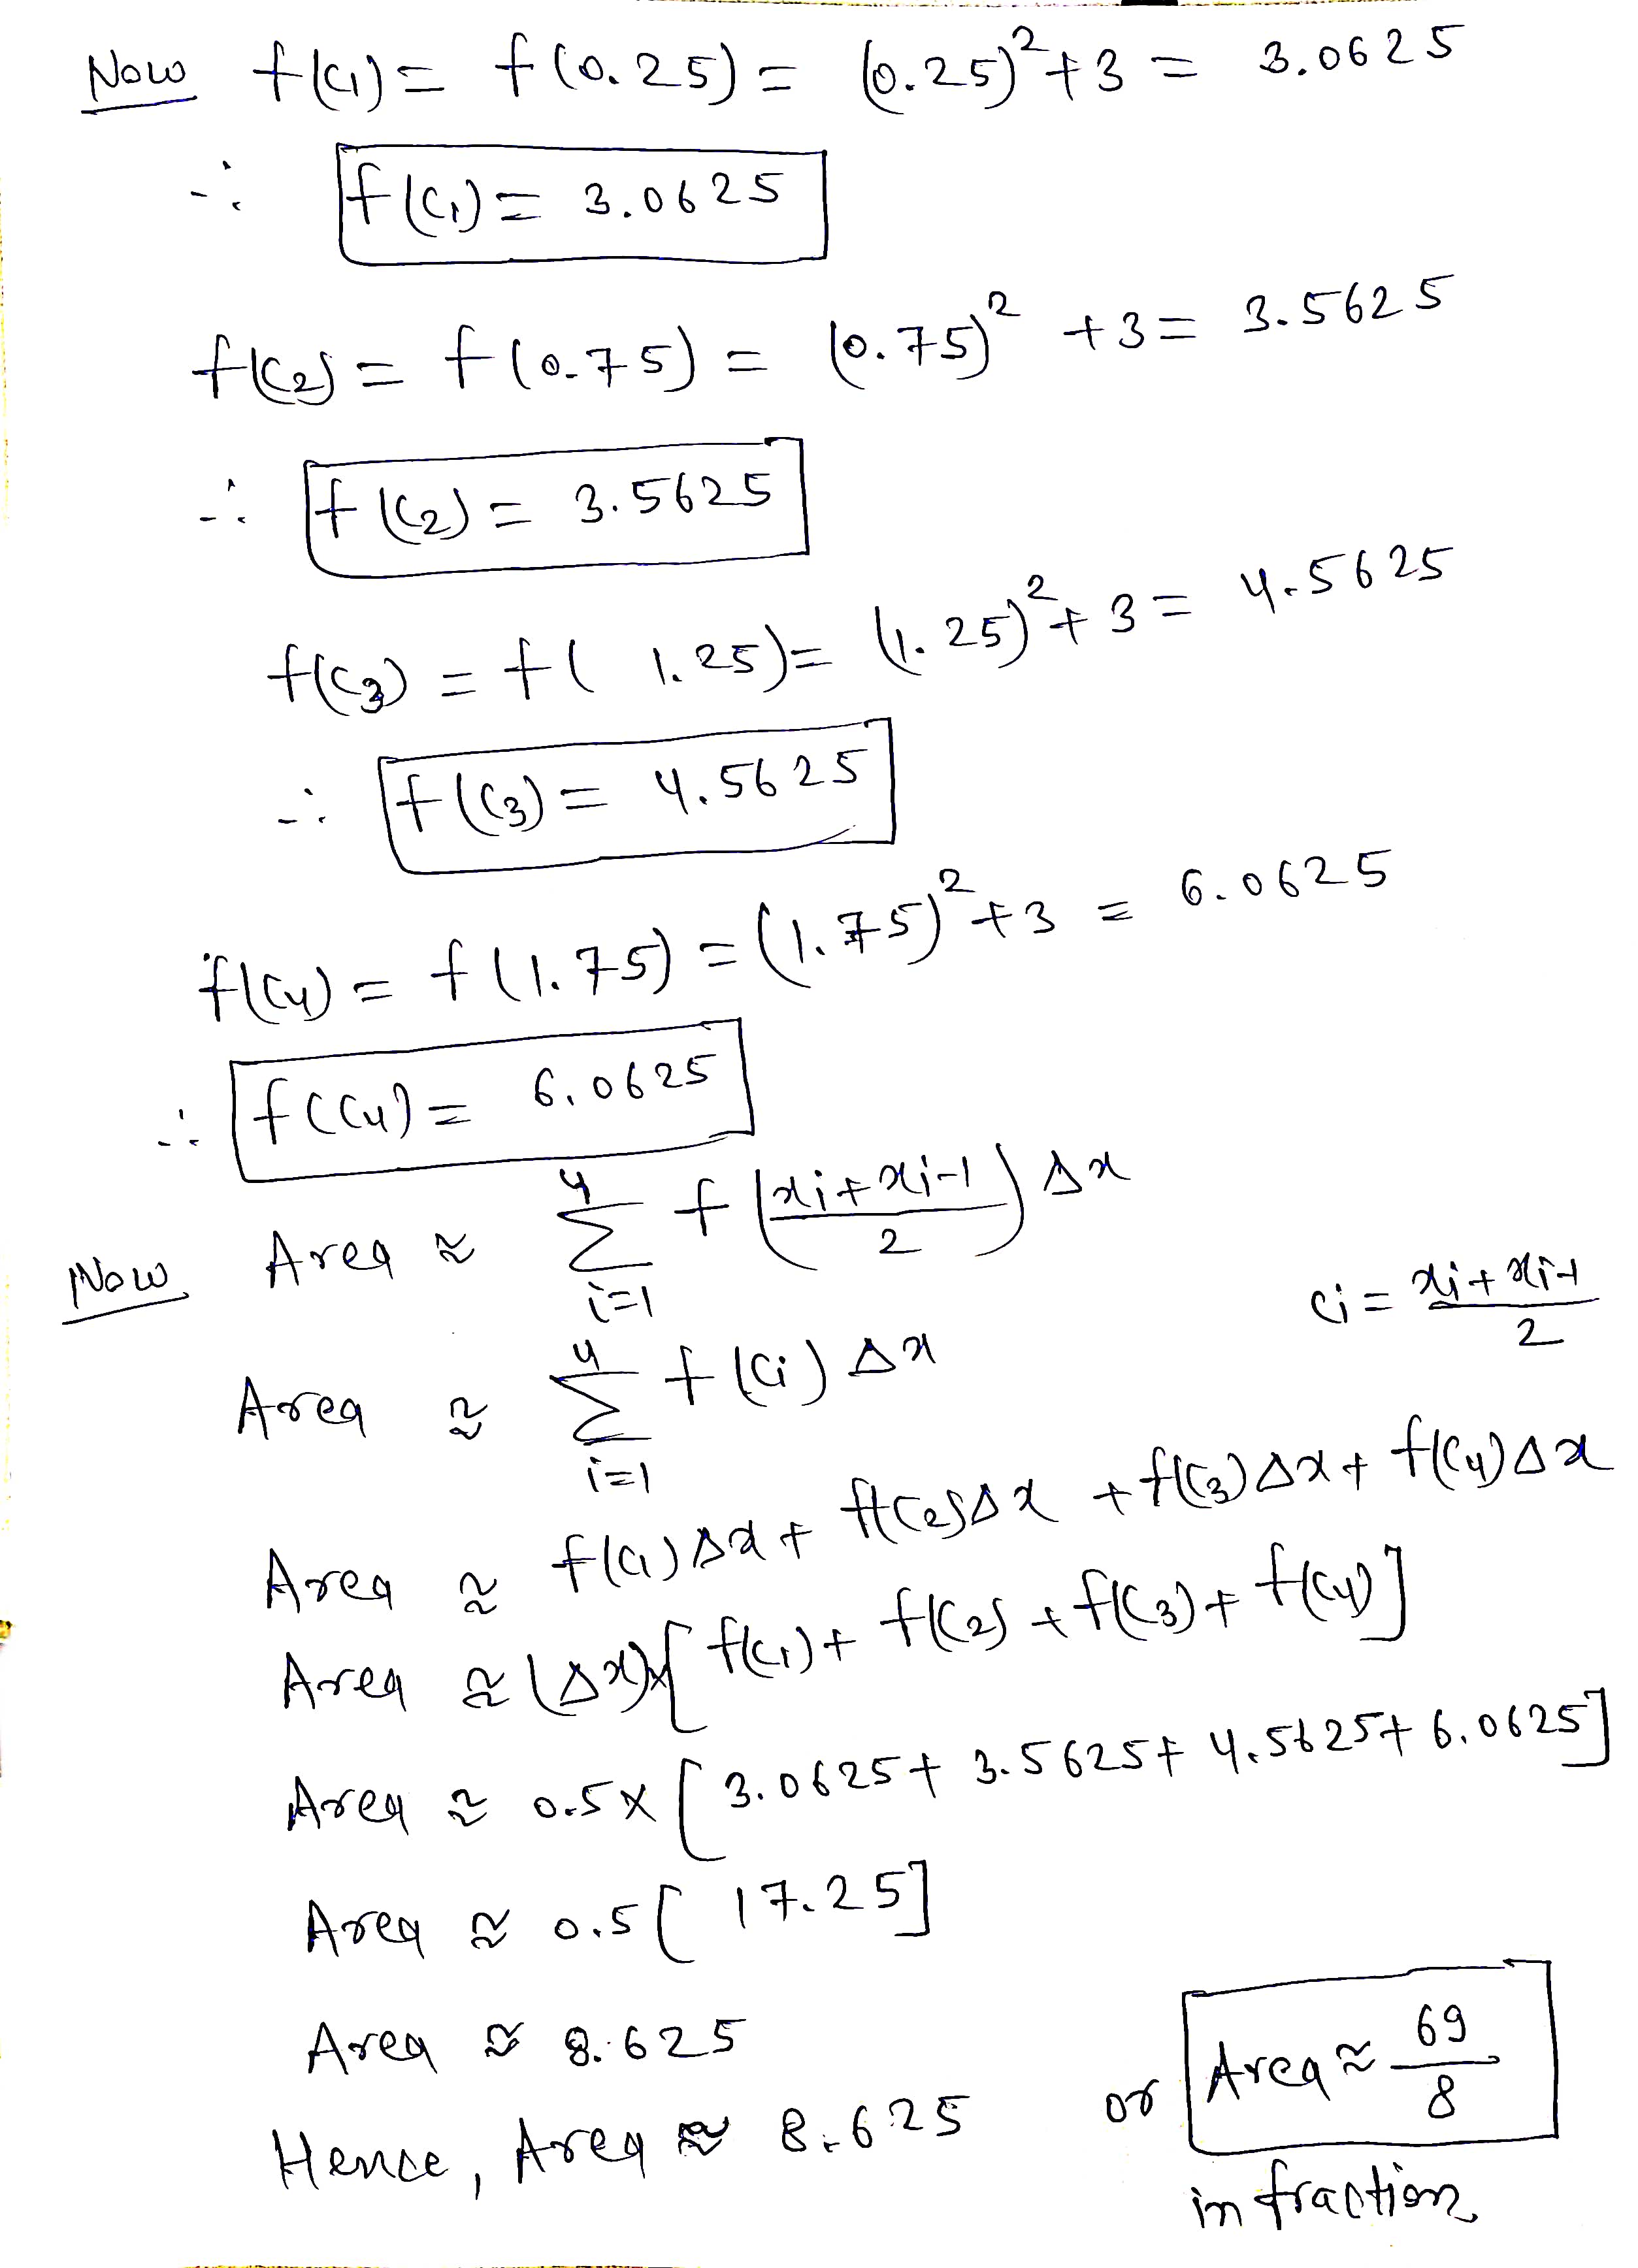 Now f(c₁) = f(0.25) = (0.25)² + 3 = 3.0625
∴ f(c₁) = 3.0625
f(c₂) = f(0.75) = (0.75)² + 3 = 3.5625
∴ f(c₂) = 3.5625
f(c₃) = f(1.25) = (1.25)² + 3 = 4.5625
∴ f(c₃) = 4.5625
f(c₄) = f(1.75) = (1.75)² + 3 = 6.0625
∴ f(c₄) = 6.0625
Now Area ≈ ∑_{i=1}^{4} f((xi + xi-1)/2) Δx
ci = (xi + xi-1)/2
Area ≈ ∑_{i=1}^{4} f(ci) Δx
Area ≈ f(c₁)Δx + f(c₂)Δx + f(c₃)Δx + f(c₄)Δx
Area ≈ (Δx)×[f(c₁) + f(c₂) + f(c₃) + f(c₄)]
Area ≈ 0.5×[3.0625 + 3.5625 + 4.5625 + 6.0625]
Area ≈ 0.5[17.25]
Area ≈ 8.625
Hence, Area ≈ 8.625 or Area ≈ 69/8
in fraction